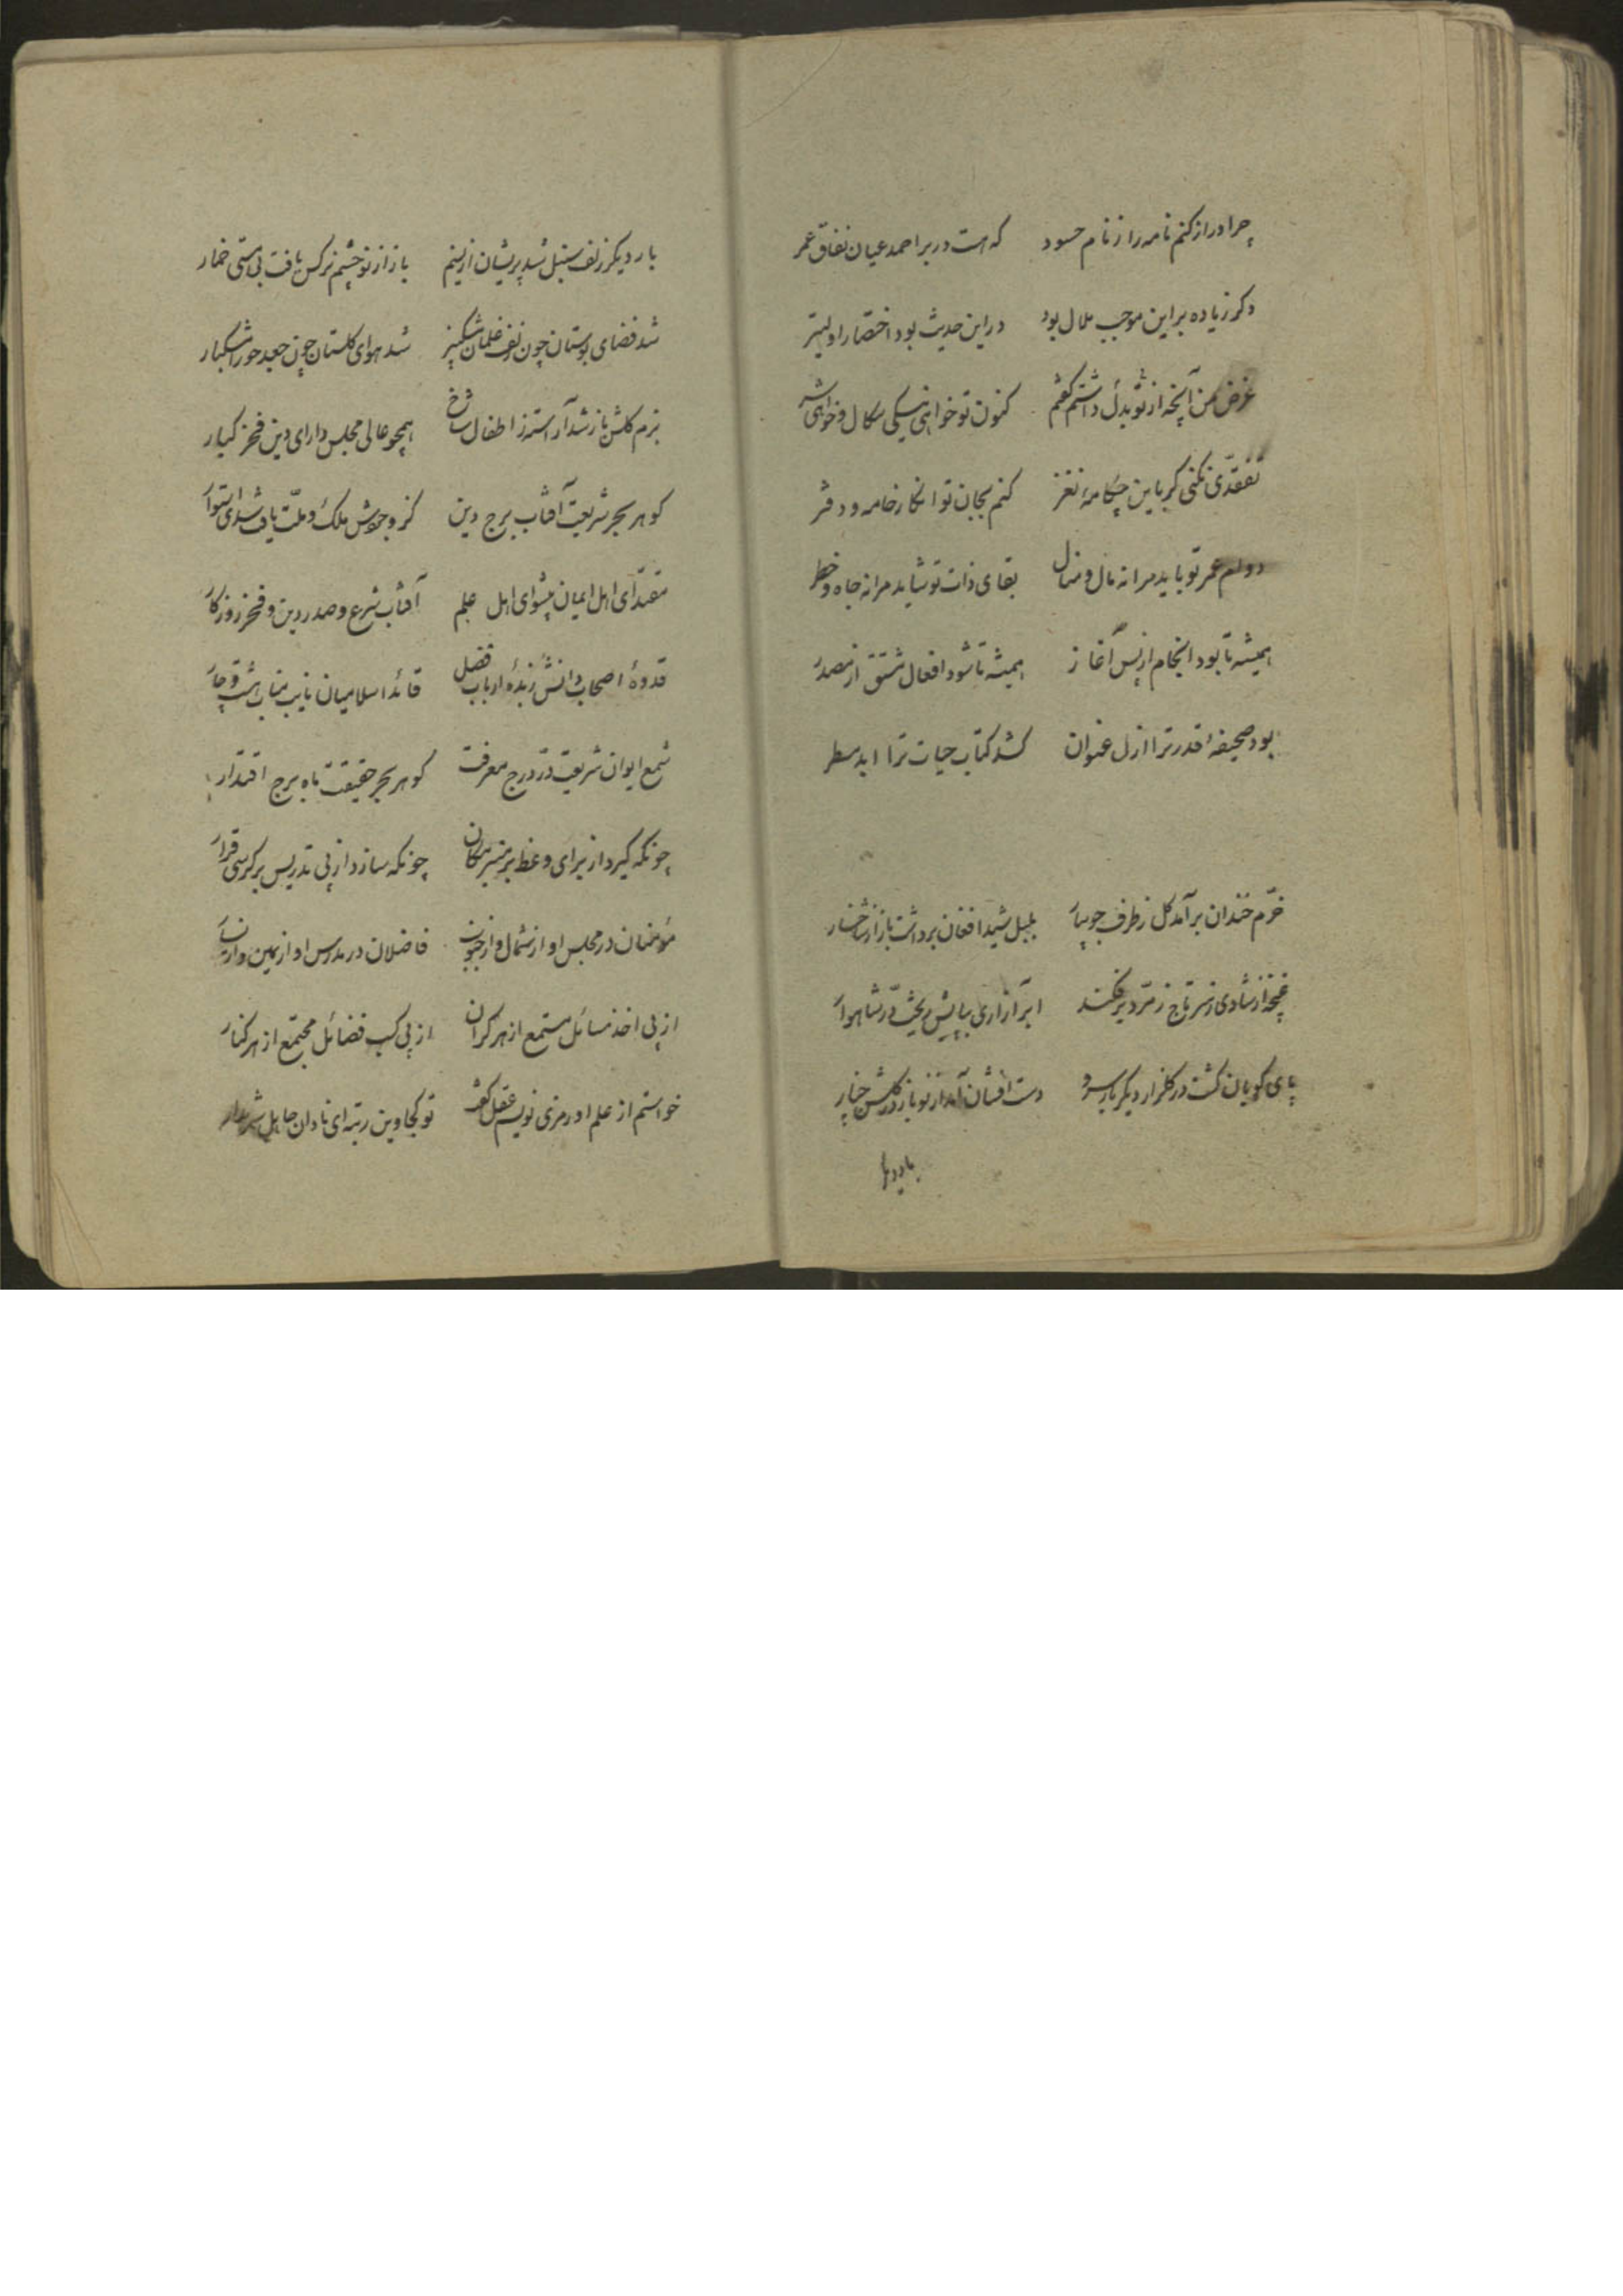 چرا دراز کنم نامه را ز نام حسود که هست در بر احمد عیان نفاق عمر
دکر زیاده بر این موجب ملال بود در این حدیث بود اختصار اولیتر
غرض من آنچه از تو بدل داشتم کفتم کنون تو خواهی نیکی سکال و خواهی شر
تفقدی نکنی کر باین چکامهٔ نغز کنم بجان تو انکار خامه و دفتر
دوام عمر تو باید مرا نه مال و منال بقای ذات تو شاید مرا نه جاه و خطر
همیشه تا بود انجام از پس آغاز همیشه تا شود افعال مشتق از مصدر
بود صحیفهٔ قدر ترا ازل عنوان کشد کتاب حیات ترا ابد مسطر
خرّم خندان برآمد کل ز طرف جویبار بلبل شیدا فغان برداشت باز از شاخسار
غنچه از شادی ز سر تاج زمرّد برفکند ابر آزاری بپایش ریخت درّ شاهوار
پای کوبان کشت در کلزار دیکر بار سرو دست افشان آمد از نو باز در کلشن چنار
بار دیکر
بار دیکر زلف سنبل شد پریشان از نسیم باز از نو چشم نرکس یافت بی مستی خمار
شد فضای بوستان چون زلف غلمان مشکبیز شد هوای کلستان چون جعد حورا مشکبار
بزم کلشن باز شد آراسته ز اطفال شاخ همچو عالی مجلس دارای دین فخر کبار
کوهر بحر شریعت آفتاب برج دین کز وجودش ملک و ملّت یافت استوار
مقتدای اهل ایمان پیشوای اهل علم آفتاب شرع و صدر دین و فخر روزکار
قدوهٔ اصحاب دانش زبدهٔ ارباب فضل قائد اسلامیان نایب مناب هشت و چار
شمع ایوان شریعت درّ درج معرفت کوهر بحر حقیقت ماه برج اقتدار
چونکه کیرد از برای وعظ بر منبر مکان چونکه سازد از پی تدریس بر کرسی قرار
مؤمنان در مجلس او از شمال و از جنوب فاضلان در مدرس او از یمین و از یسار
از پی اخذ مسائل مستمع از هر کران از پی کسب فضائل مجتمع از هر کنار
خواستم از علم او رمزی نویسم عقل کفت تو کجا وین رتبه ای نادان جاهل شرم دار